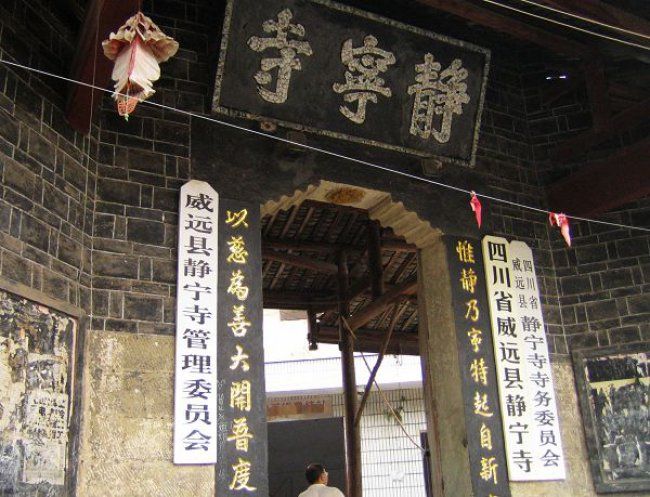 靜寧寺
威远县静宁寺管理委员会
以慈為善大開普度
惟靜乃寧特起自新
四川省威远县静宁寺
四川省
威远县
静宁寺寺务委员会